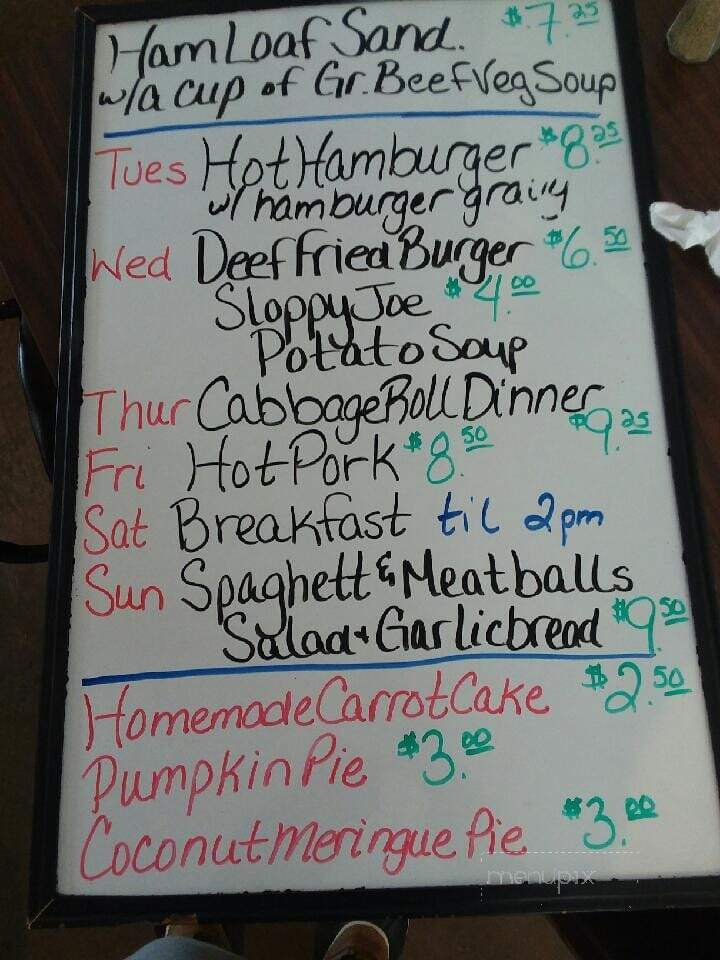 Ham Loaf Sand. $7.25
w/a cup of Gr. Beef Veg Soup
Tues Hot Hamburger $8.25
w/ hamburger gravy
Wed Deef Fried Burger $6.50
Sloppy Joe $4.00
Potato Soup
Thur Cabbage Roll Dinner
$9.25
Fri Hot Pork $8.50
Sat Breakfast til 2pm
Sun Spaghett & Meatballs
Salad + Garlic bread $9.50
Homemade Carrot Cake $2.50
Pumpkin Pie $3.00
Coconut Meringue Pie $3.00
menupix